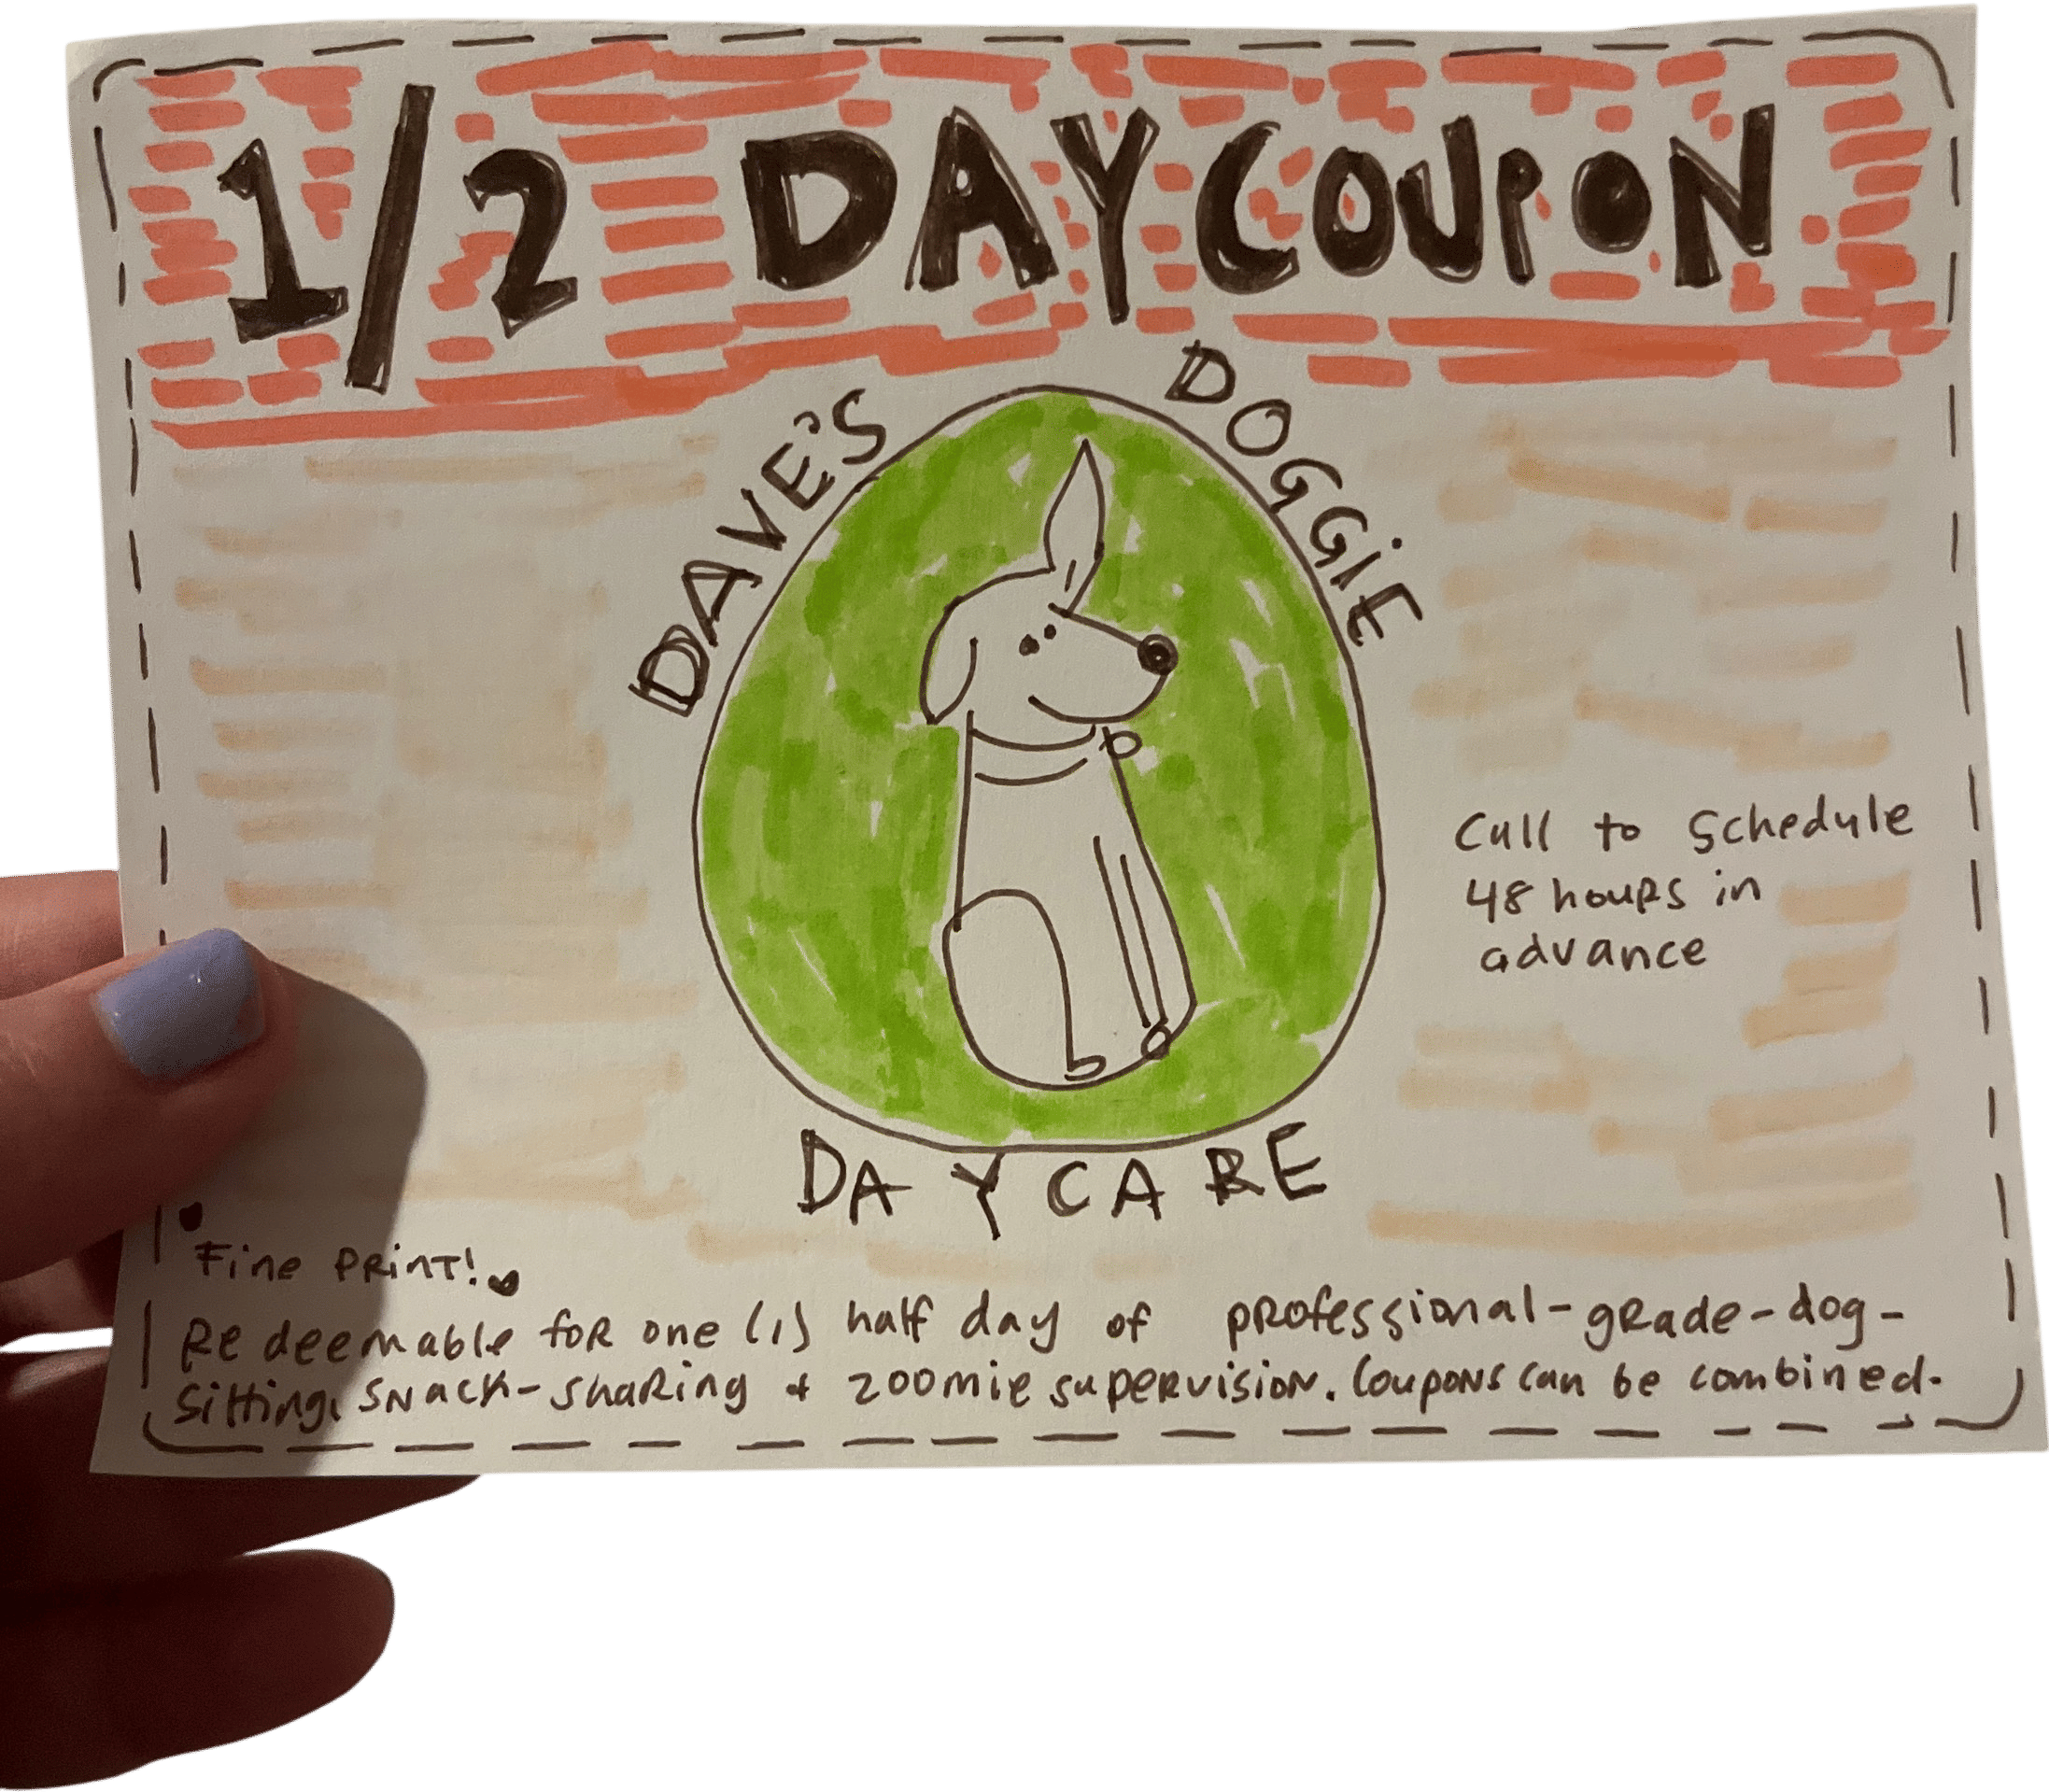 1/2 DAY COUPON
DAVE'S DOGGIE
DAYCARE
Call to Schedule
48 hours in
advance
Fine PRinT!
Redeemable foR one (1) half day of professional-grade-dog-
sitting, snack-sharing + zoomie supervision. Coupons can be combined.